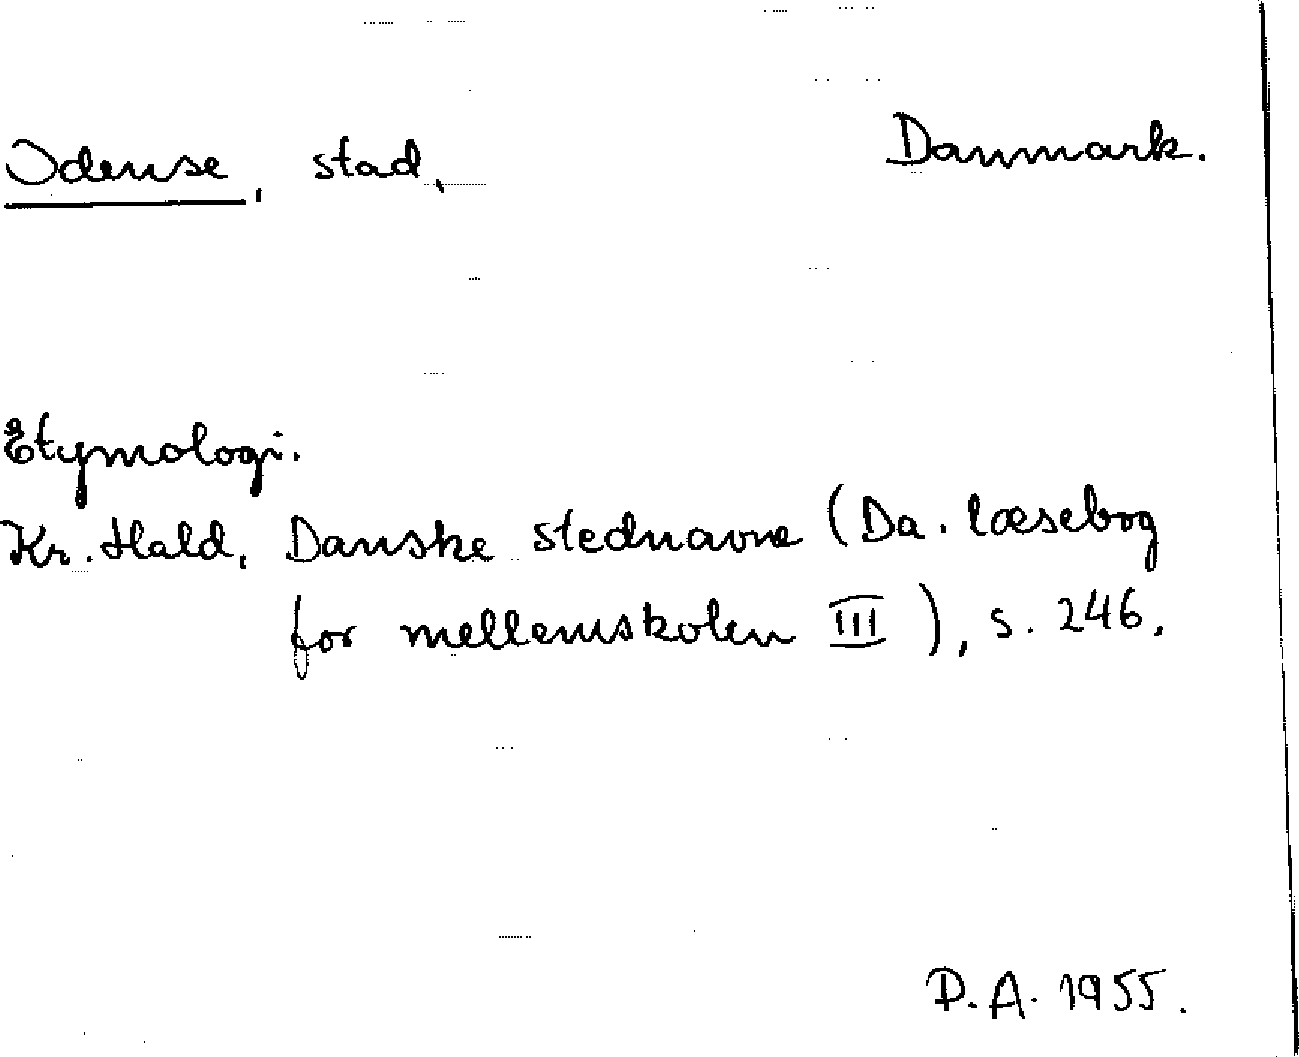 Odense, stad, Danmark.
Etymologi.
Kr. Hald, Danske stednavne (Da. læsebog
for mellemskolen III), s. 246.
D.A. 1955.